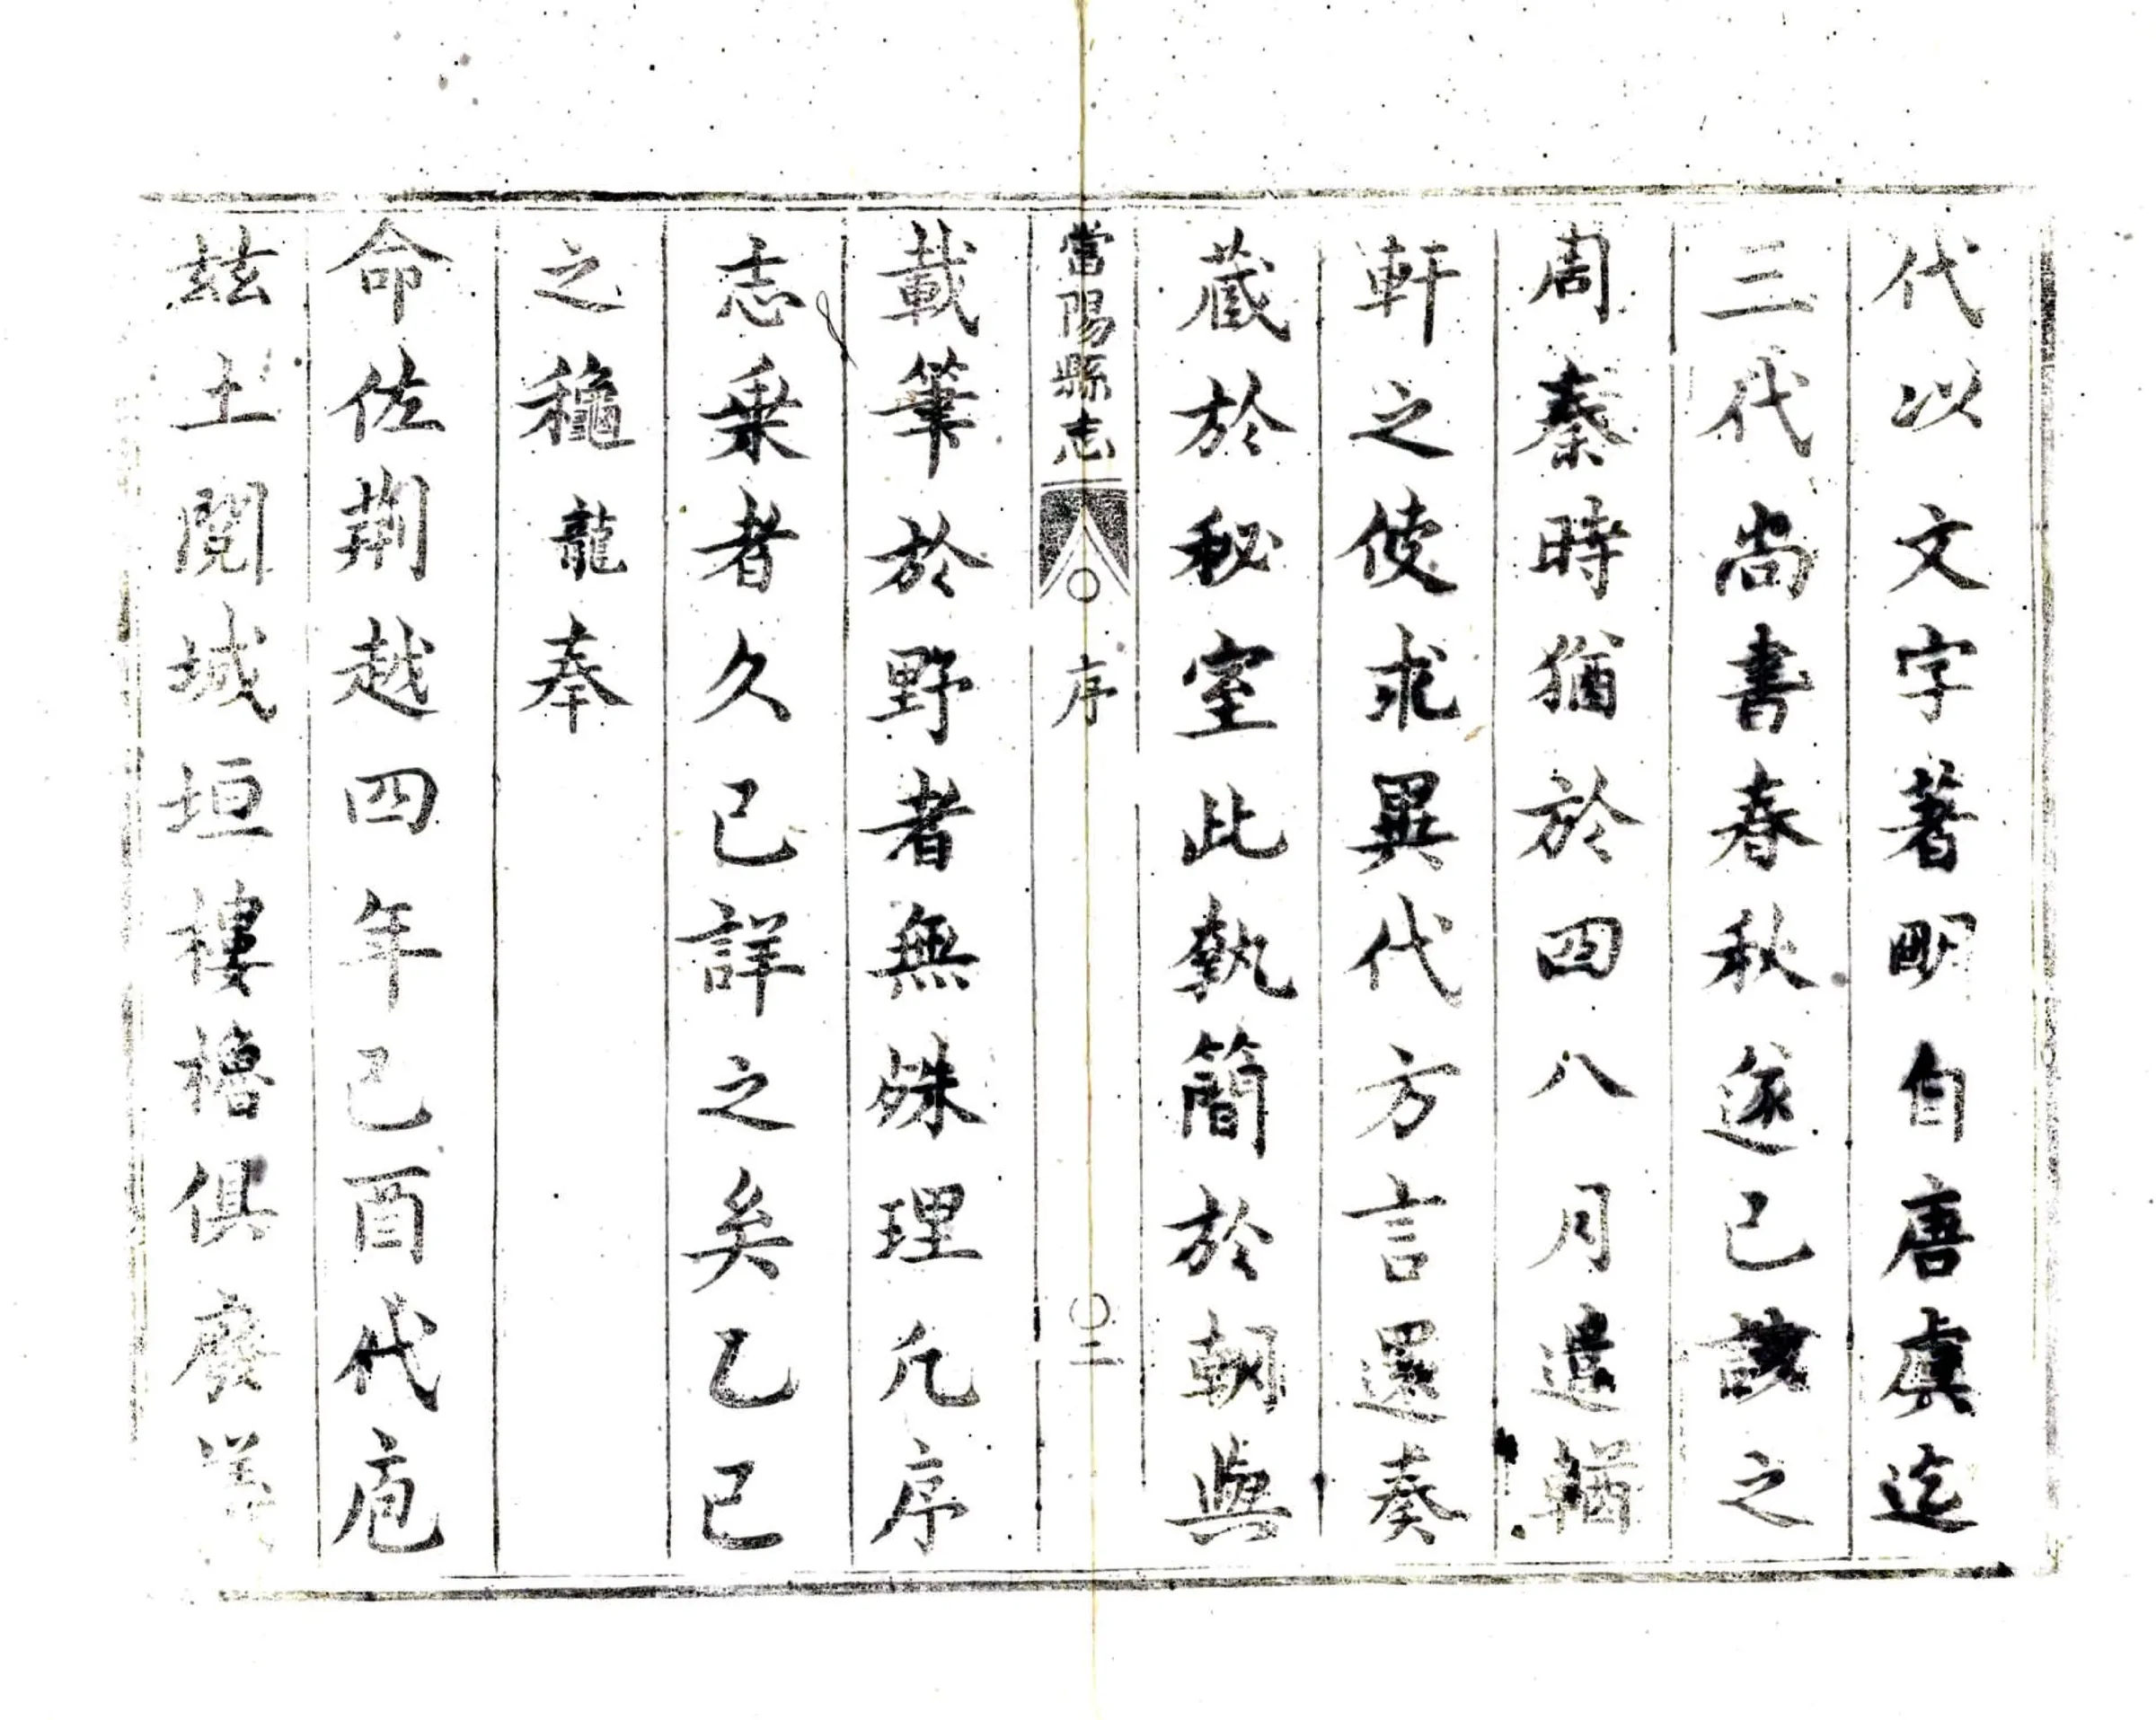 代以文字著明自唐虞迄
三代尚書春秋遂已該之
周秦時猶於四八月遣輶
軒之使求異代方言還奏
蔵於秘室此執簡於朝與
當陽縣志
序
〇二
載筆於野者無殊理凢序
志乗者久已詳之矣乙巳
之龝龍奉
命佐荆越四年己酉代庖
兹土閲城垣樓櫓俱廢